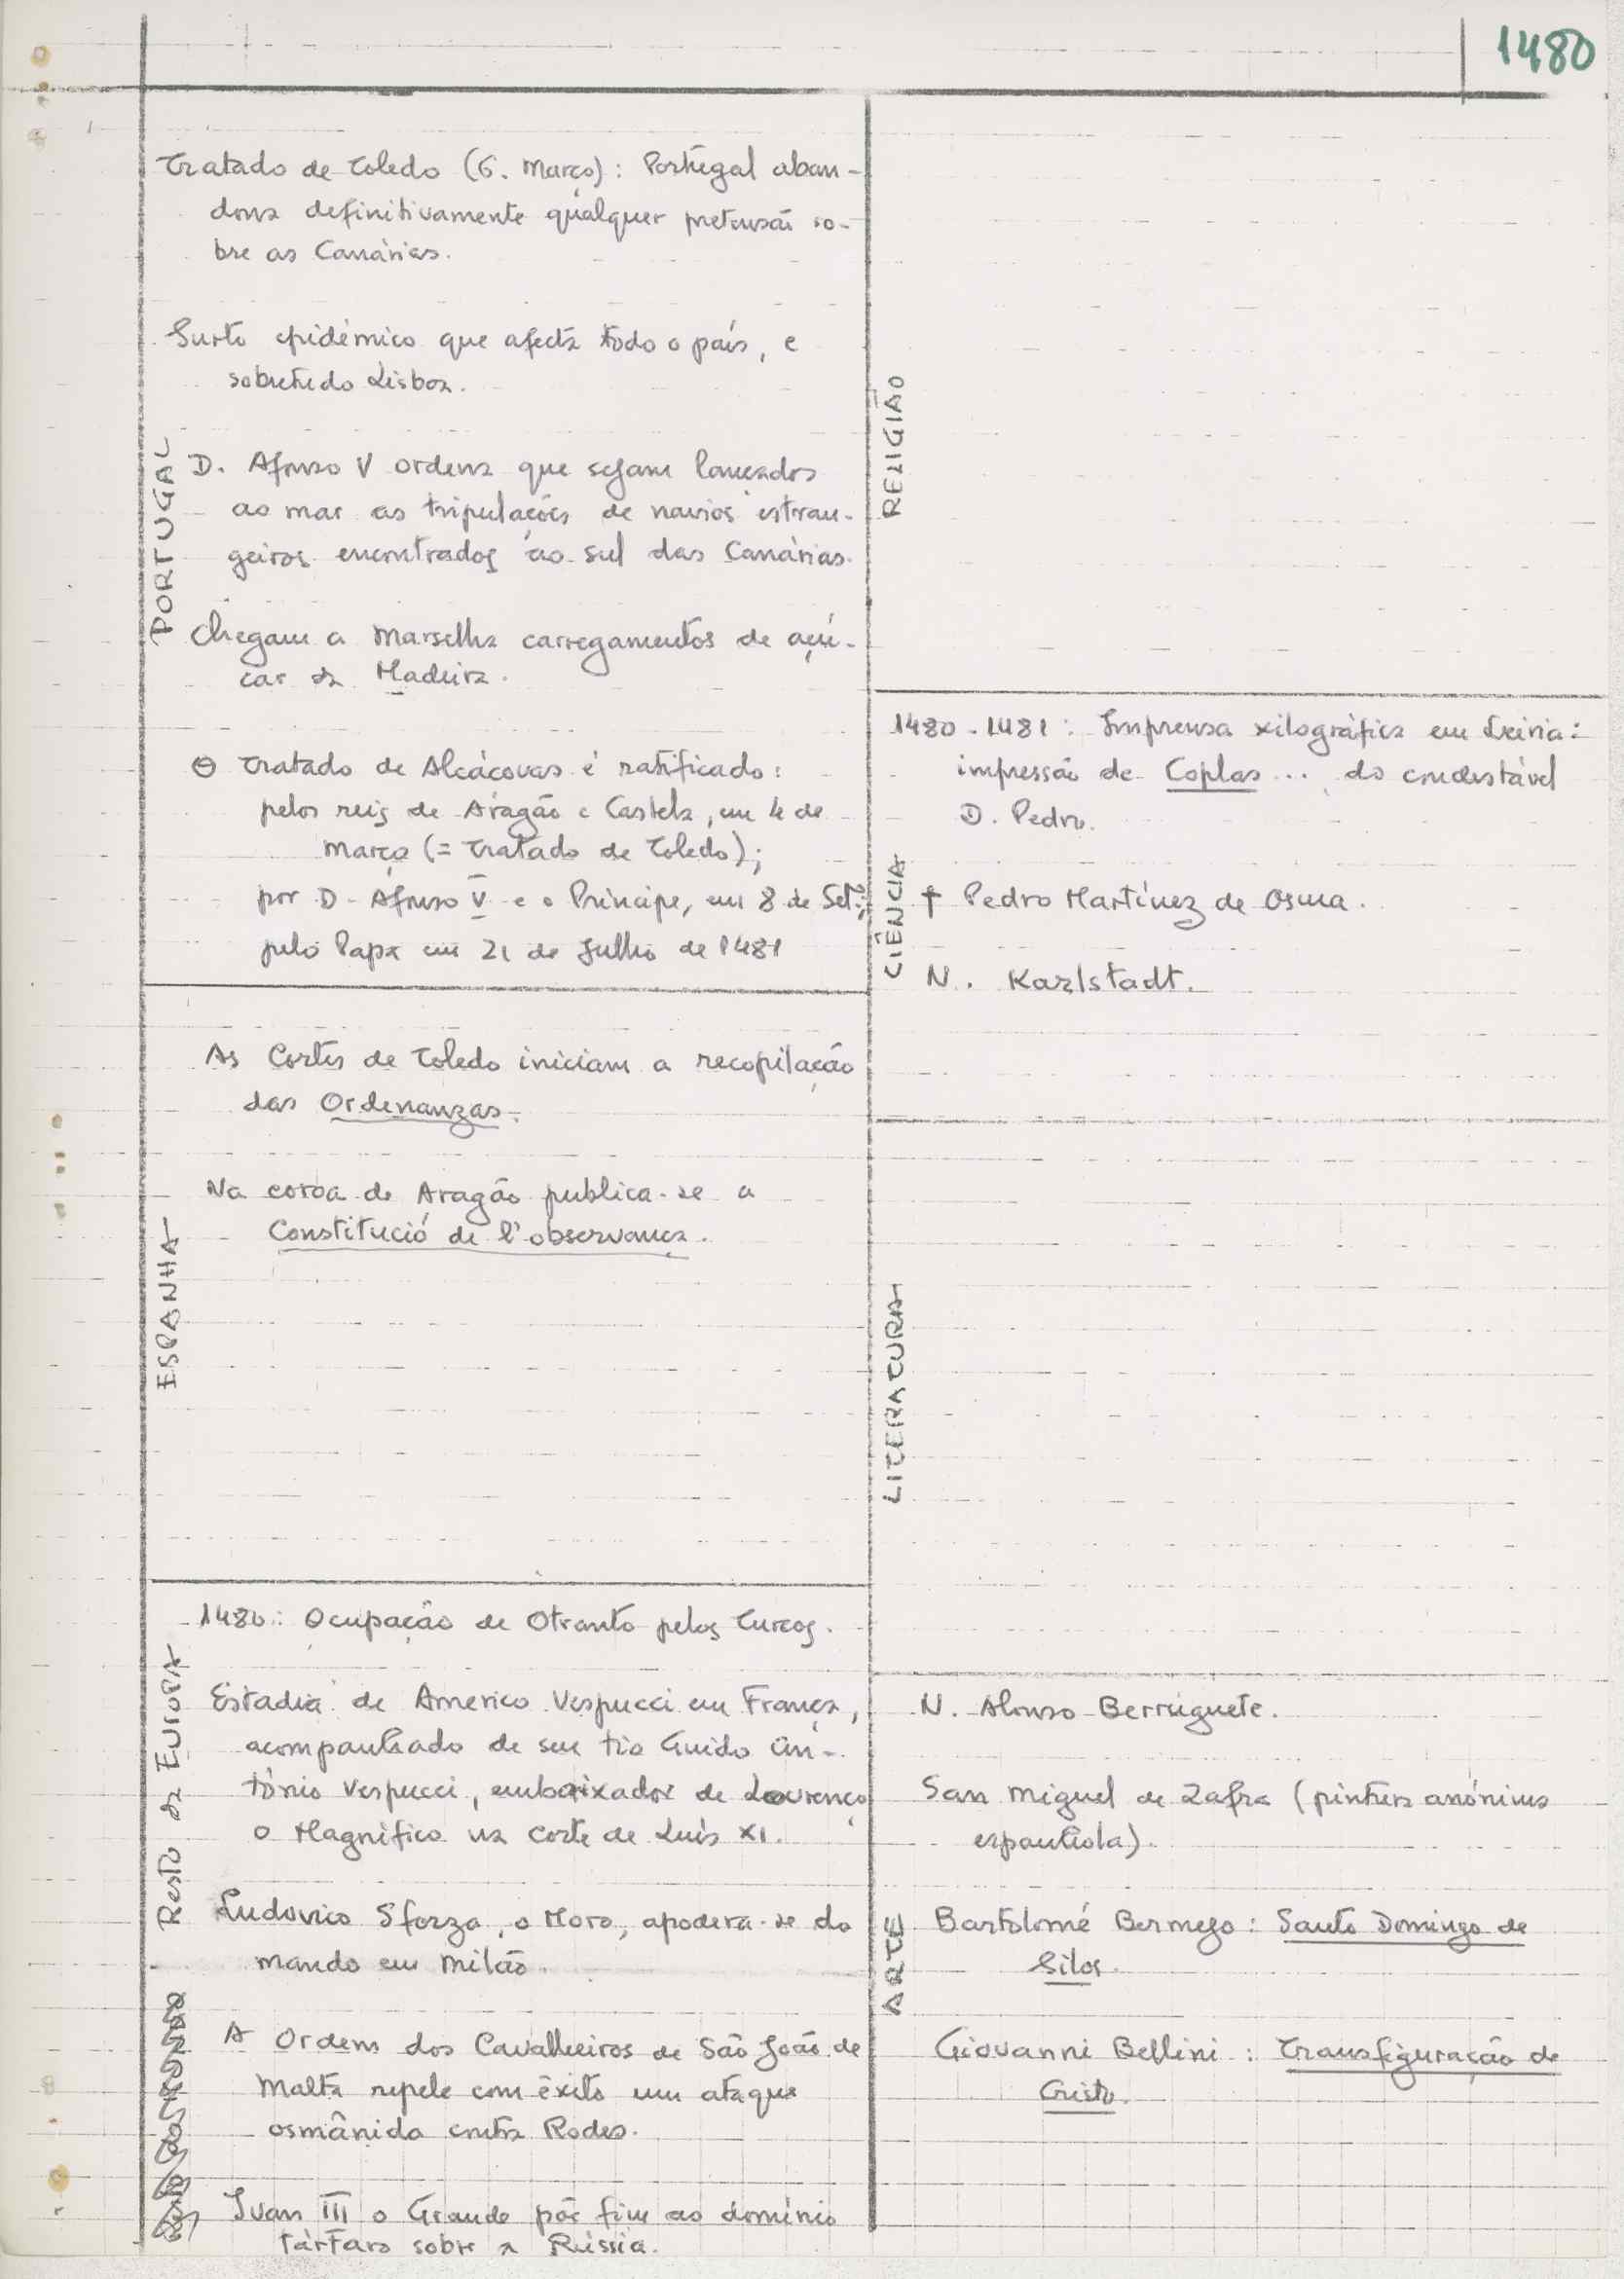 1480
PORTUGAL
Tratado de Toledo (6. Março): Portugal aban-
dona definitivamente qualquer pretensão so-
bre as Canárias.
Surto epidémico que afecta todo o país, e
sobretudo Lisboa.
D. Afonso V ordena que sejam lançados
ao mar as tripulações de navios estran-
geiros encontrados ao sul das Canárias.
Chegam a Marselha carregamentos de açú-
car da Madeira.
O Tratado de Alcáçovas é ratificado:
pelos reis de Aragão e Castela, em 4 de
março (= Tratado de Toledo);
por D. Afonso V e o Príncipe, em 8 de Set.;
pelo Papa em 21 de Julho de 1481
ESPANHA
As Cortes de Toledo iniciam a recopilação
das Ordenanzas.
Na coroa de Aragão publica-se a
Constitució de l'observança.
Resto da EUROPA
1480: Ocupação de Otranto pelos Turcos.
Estadia de Americo Vespucci em França,
acompanhado de seu tio Guido An-
tónio Vespucci, embaixador de Lourenço
o Magnífico na corte de Luís XI.
Ludovico Sforza, o Moro, apodera-se do
mando em Milão.
A Ordem dos Cavalheiros de São João de
Malta repele com êxito um ataque
osmânida contra Rodes.
Ivan III o Grande põe fim ao domínio
tártaro sobre a Rússia.
RELIGIÃO
CIÊNCIA
1480-1481: Imprensa xilográfica em Leiria:
impressão de Coplas... do condestável
D. Pedro.
† Pedro Martínez de Osma.
N. Karlstadt.
LITERATURA
ARTE
N. Alonso Berruguete.
San Miguel de Zafra (pintura anónima
espanhola).
Bartolomé Bermejo: Santo Domingo de
Silos.
Giovanni Bellini: Transfiguração de
Cristo.